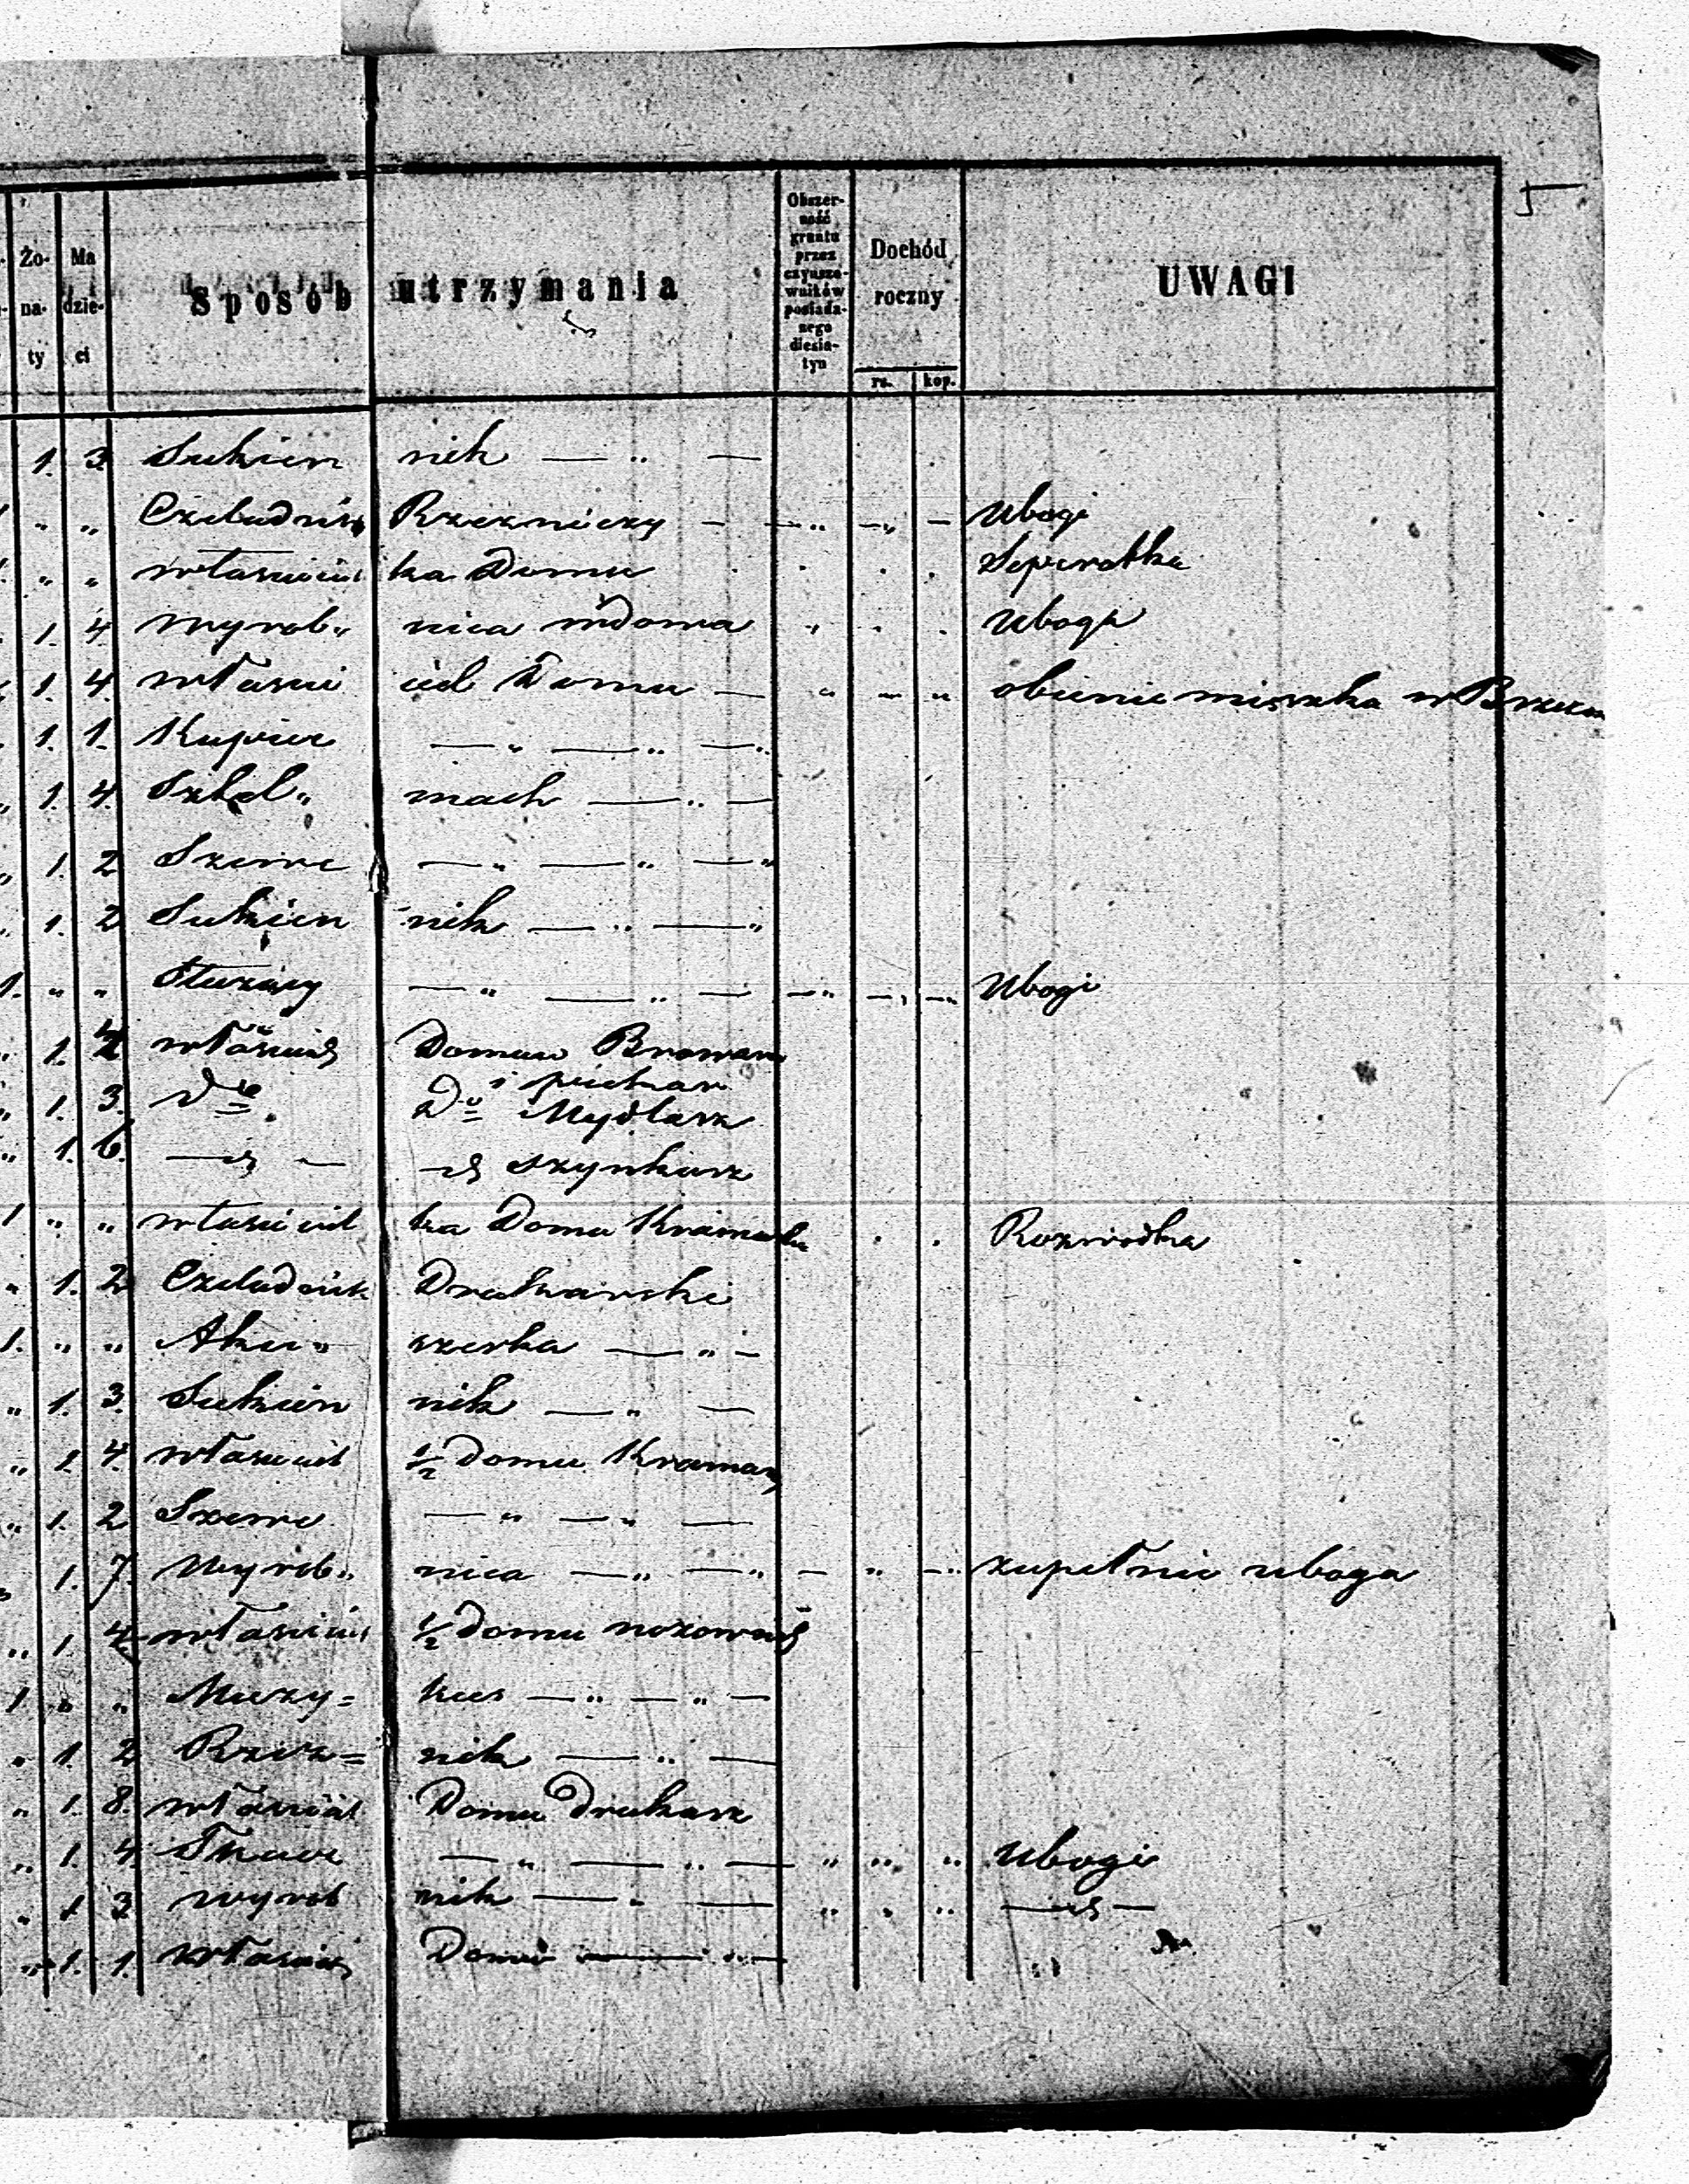 5
Żo-
na-
ty
Ma
dzie-
ci
Sposób utrzymania
Obszer-
ność
gruntu
przez
czynszo-
wników
posiada-
nego
diesia-
tyn
Dochód
roczny
rs. kop.
UWAGI
1. 3. Sukien nik — „ —
„ „ Czeladnik Rzezniczy — — „ — „ — Ubogi
„ „ własciciel ka Domu Seperatka
1. 4. wyrob„ nica wdowa „ Uboga
1. 4. własci ciel Domu — „ — „ obecnie mięszka w Brzezin
1. 1. Kupiec — „ — „ — „
1. 4. Szkel„ mach — „ —
1. 2 Szewc — „ — „ — „
1. 2 Sukien nik — „ — „
1. „ „ Służący — „ — „ — — „ — „ — „ Ubogi
1. 4 właściciel Domu Browaru
i piekar
1. 3. do Do Mydlarz
1. 6. — „ — — „ Szynkarz
1 „ „ właściciel ka Domu Kramarka Rozwodka
„ 1. 2 Czeladnik Drukarski
1. „ „ Aku„ szerka — „ —
„ 1. 3. Sukien nik — „ —
„ 1. 4. własciciel ½ Domu Kramarz
„ 1. 2 Szewc — „ — „ —
1. 7. Wyrob„ nica — „ — „ — „ — „ zupełnie uboga
„ 1. 4 własciciel ½ Domu
1 „ „ Muzy= kus — „ — „ —
„ 1. 2 Rzez= nik — „ —
„ 1. 8. właściciel Domu Drukarz
„ 1. 4. Tkacz — „ — „ — „ „ „ Ubogi
„ 1 3 wyrob nik — „ — „ „ „ — „ —
„ 1. 1. własciciel Domu — „ —